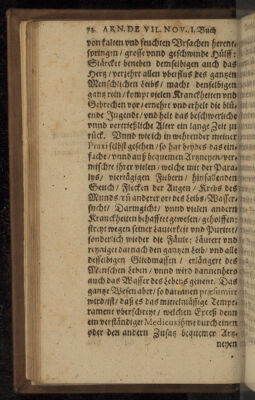 78 ARN. DE VIL. NOV. I. Buch
von kalten und feuchten Ursachen herent-
springen / grosse vnnd geschwinde Hülff:
Stärcket beneben demselbigen auch das
Hertz / verzehrt allen vberfluß des gantzen
Menschlichen Leibs / macht denselbigen
gantz rein / sompt vielen Kranckheiten vnd
Gebrechen vor / ernehrt vnd erhelt die blü-
ende Jugendt / vnd helt das beschwerliche
vnnd verdrießliche Alter ein lange Zeit zu
rück. Vnnd wie ich in wehrender meiner
Praxi selbst gesehen / so hat beydes das ein-
fache / vnnd auß bequemen Artzneyen / ver-
mischte ihrer vielen / welche mit der Para-
lys / viertägigen Fiebern / hinfallenden
Seuch / Flecken der Augen / Krebs des
Munds vn̄ anderer ort des Leibs / Wasser-
sucht / Darmgicht / vnnd vielen andern
Kranckheiten behafftet gewesen / geholffen:
streyt wegen seiner Lauterkeit vnd Puritet /
sonderlich wieder die Fäule: Läutert vnd
reyniget darnach den gantzen Leib / vnd alle
desselbigen Gliedmassen / erlängert des
Menschen Leben / vnnd wird dannenhero
auch das Wasser des Lebens genent. Das
gantze Wesen aber / so daran præsumirt
wird / ist / daß es das mittelmässige Tempe-
rament vberschreyt / welchen Exceß denn
ein verständiger Medicus ihme durch einen
oder den andern Zusatz bequemer Artz-
neyen